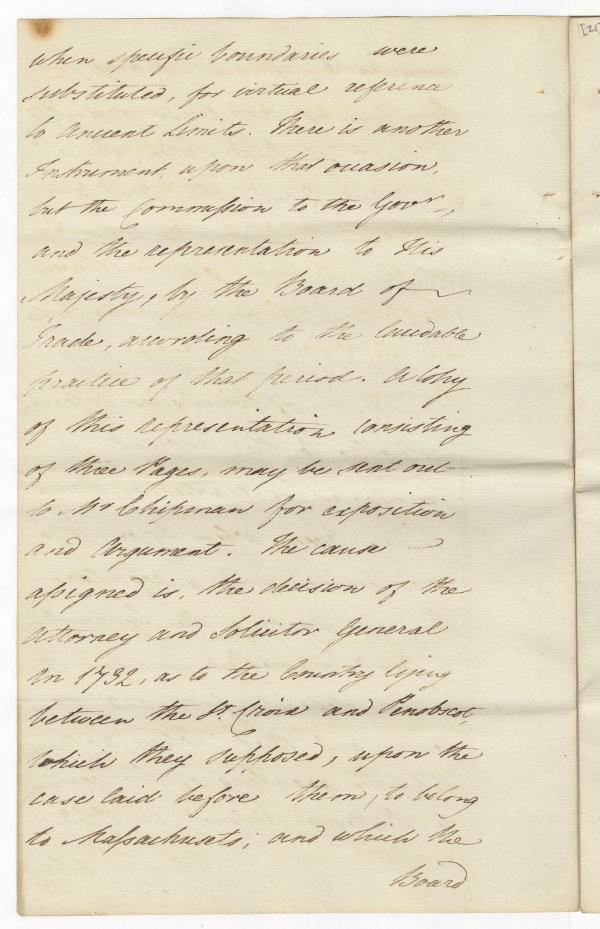 when specific boundaries were
substituted, for virtual reference
to Ancient Limits. There is another
Instrument, upon that occasion,
but the Commission to the Govr.,
and the representation to His
Majesty, by the Board of
Trade, according to the laudable
practice of that period. A Copy
of this representation consisting
of three Pages, may be sent out
to Mr Chipman for exposition
and Argument. The cause
assigned is, the decision of the
Attorney and Solicitor General
in 1732, as to the Country lying
between the St. Croix and Penobscot,
which they supposed, upon the
case laid before them, to belong
to Massachusets; and which the
Board
[21]